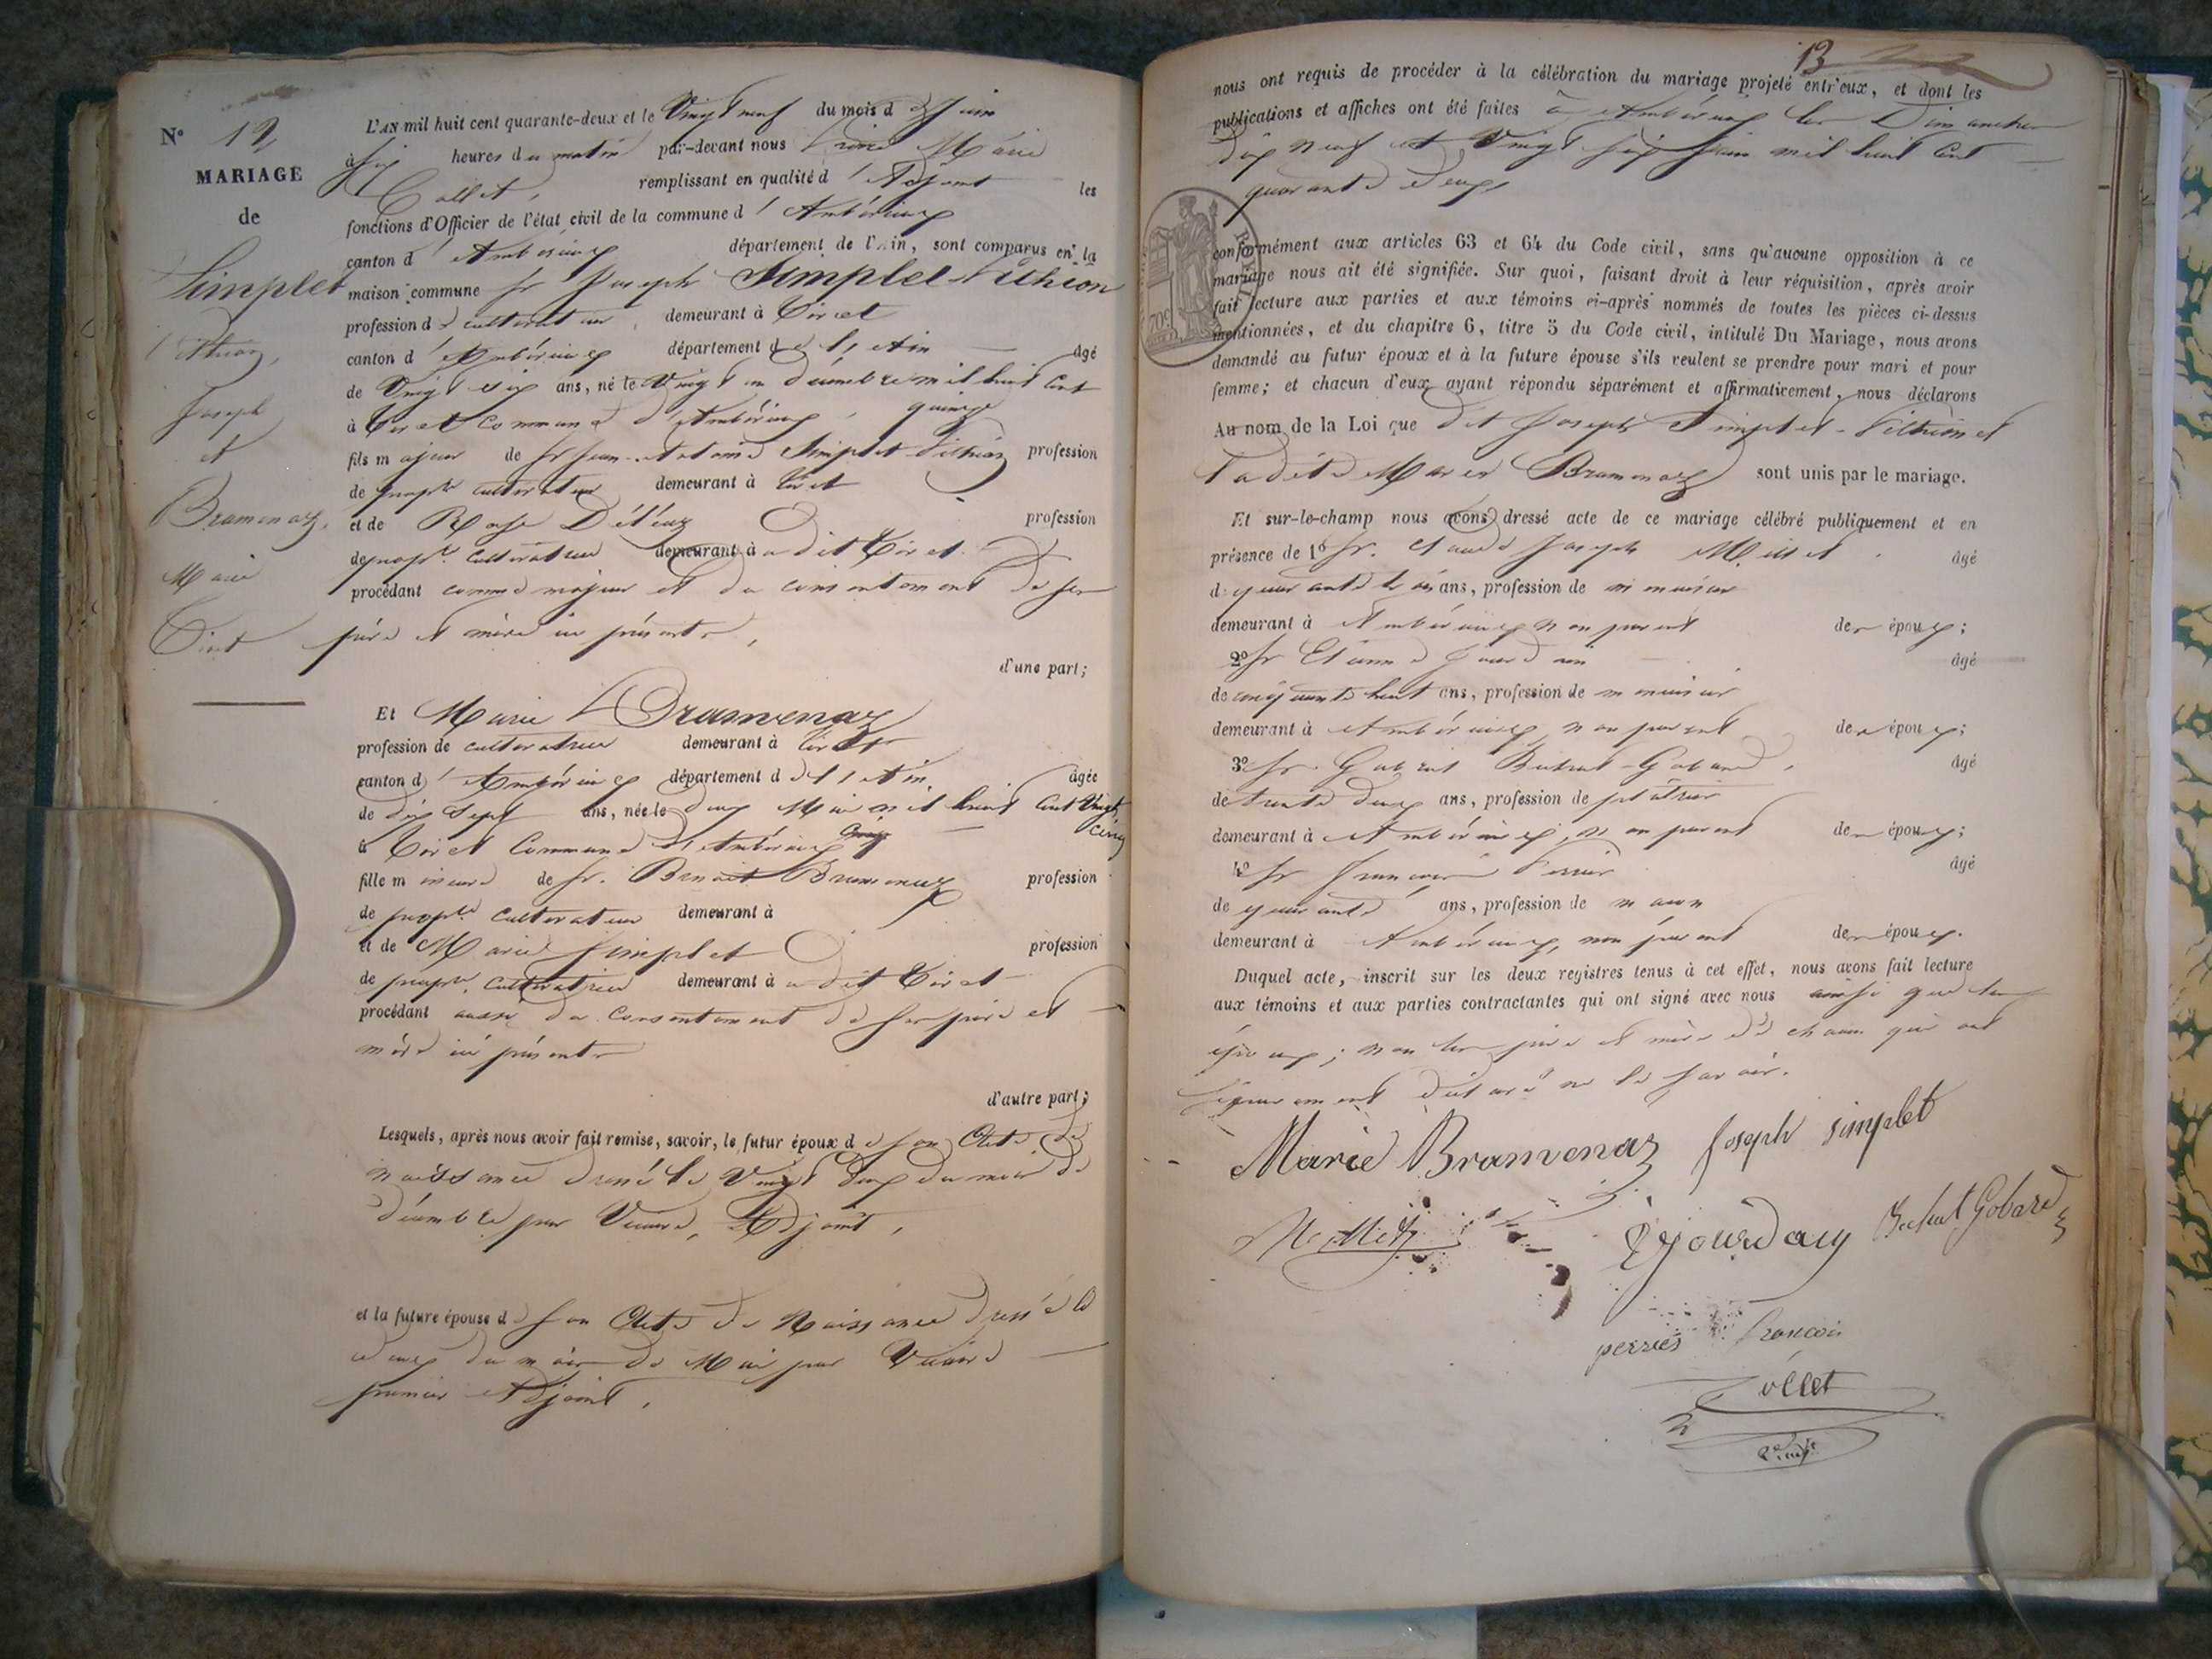 N° 12
MARIAGE
de
Simplet
Vithion,
Joseph
et
Bramenaz,
Marie
Tiret
L'AN mil huit cent quarante-deux et le Vingt neuf du mois de Juin
à six heures du matin par-devant nous Marie
Collet, remplissant en qualité d'Adjoint les
fonctions d'Officier de l'état civil de la commune d'Ambérieux
canton d'Ambérieux département de l'Ain, sont comparus en la
maison commune Sr Joseph Simplet-Vithion
profession de cultivateur, demeurant à Tiret
canton d'Ambérieux département de l'Ain âgé
de Vingt six ans, né le Vingt un décembre mil huit cent
quinze
à Tiret commune d'Ambérieux,
fils majeur de Sr Jean-Antoine Simplet-Vithion profession
de propre cultivateur demeurant à Tiret
et de Rose Déléaz profession
de propre. cultivatrice demeurant à audit Tiret
procédant comme majeur et du consentement de ses
père et mère ici présents,
d'une part;
Et Marie Bramenaz
profession de cultivatrice demeurant à Tiret
canton d'Ambérieux département de l'Ain âgée
de dix sept ans, née le deux Mai mil huit cent Vingt
cinq
à Tiret Commune d'Ambérieux
fille mineure de Sr. Benoit Bramenaz profession
de propre cultivateur demeurant à
et de Marie Simplet profession
de propre. cultivatrice demeurant à audit Tiret
procédant aussi du consentement de ses père et
mère ici présents
d'autre part;
Lesquels, après nous avoir fait remise, savoir, le futur époux de son Acte de
naissance dressé le Vingt deux du mois de
décembre par Vicaire, Adjoint,
et la future épouse de son Acte de Naissance dressé le
deux du mois de Mai par Vicaire
premier Adjoint,
13
nous ont requis de procéder à la célébration du mariage projeté entr'eux, et dont les
publications et affiches ont été faites à Ambérieux les Dimanches
dix neuf et Vingt six Juin mil huit cent
quarante deux,
conformément aux articles 63 et 64 du Code civil, sans qu'aucune opposition à ce
mariage nous ait été signifiée. Sur quoi, faisant droit à leur réquisition, après avoir
fait lecture aux parties et aux témoins ci-après nommés de toutes les pièces ci-dessus
mentionnées, et du chapitre 6, titre 5 du Code civil, intitulé Du Mariage, nous avons
demandé au futur époux et à la future épouse s'ils veulent se prendre pour mari et pour
femme; et chacun d'eux ayant répondu séparément et affirmativement, nous déclarons
Au nom de la Loi que dit Joseph Simplet-Vithion et
ladite Marie Bramenaz sont unis par le mariage.
Et sur-le-champ nous avons dressé acte de ce mariage célébré publiquement et en
présence de 1° Sr. Claude Joseph Millet âgé
de quarante trois ans, profession de menuisier
demeurant à Ambérieux non parent des époux;
2° Sr Etienne Jourdain âgé
de cinquante huit ans, profession de menuisier
demeurant à Ambérieux, non parent des époux;
3° Sr Gabriel Gobard, âgé
de trente deux ans, profession de plâtrier
demeurant à Ambérieux, non parent des époux;
4° Sr François Perrier âgé
de quarante ans, profession de maçon
demeurant à Ambérieux, non parent des époux.
Duquel acte, inscrit sur les deux registres tenus à cet effet, nous avons fait lecture
aux témoins et aux parties contractantes qui ont signé avec nous ainsi que les
époux; non les père et mère de chacun qui ont
séparément déclaré ne le savoir.
Marie Bramenaz Joseph simplet
Gobard
perries francois
Collet